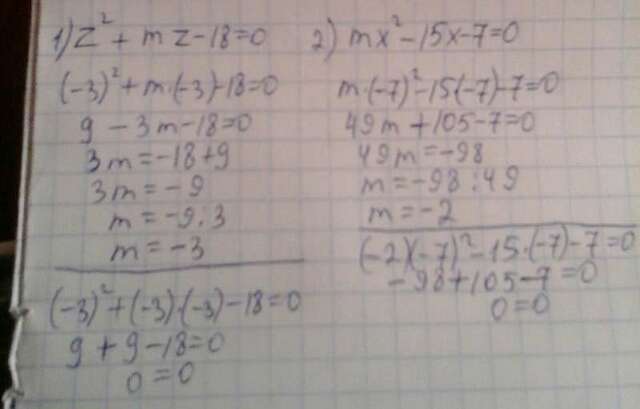 1) z² + mz - 18 = 0
(-3)² + m·(-3) - 18 = 0
9 - 3m - 18 = 0
3m = -18 + 9
3m = -9
m = -9 : 3
m = -3
(-3)² + (-3)·(-3) - 18 = 0
9 + 9 - 18 = 0
0 = 0
2) mx² - 15x - 7 = 0
m·(-7)² - 15(-7) - 7 = 0
49m + 105 - 7 = 0
49m = -98
m = -98 : 49
m = -2
(-2)(-7)² - 15·(-7) - 7 = 0
-98 + 105 - 7 = 0
0 = 0